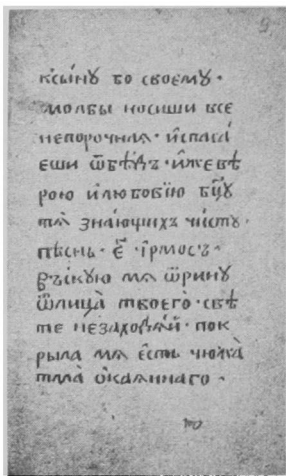 к̾сы́нꙋ бо своемꙋ ·
молбы носиши все
непорочнаѧ · и҆спаса́
еши ѿбѣ́дъ · и҆жевѣ́
рою и҆любовїю бц҃ꙋ
тѧ зна́ющихъ чи́стꙋ ·
пѣ́снь · є҃ · і҆рмосъ ·
Въ́скꙋю мѧ ѿринꙋ
ѿлица̀ твоего̀ · свѣ́
те незаходѧ́й · пок
рыла мѧ є҆сть чюжа̀
тма̀ о҆каѧннаго ·